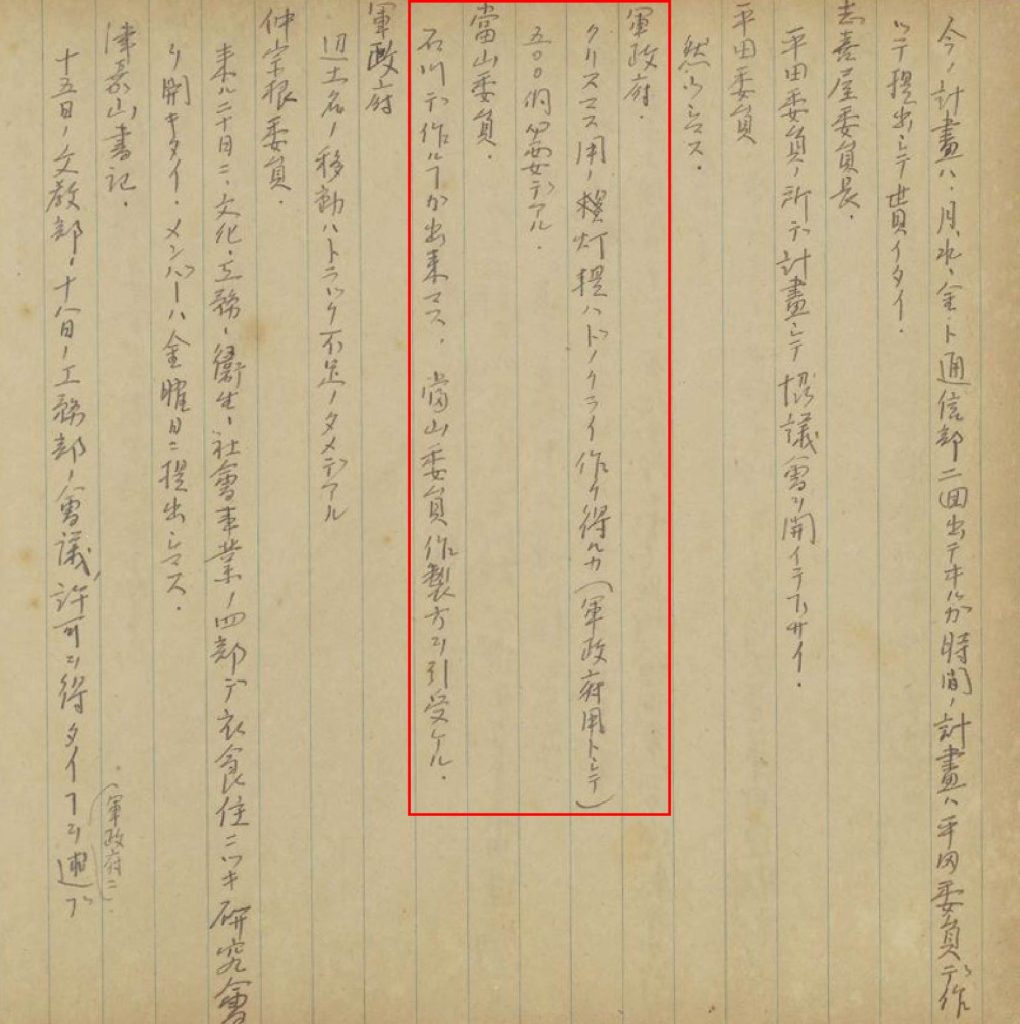 今ノ計畫ハ、月、水、金ト通信部二回出テヰルガ時間ノ計畫ハ平田委員デ作
ツテ提出シテ貰イタイ.
志喜屋委員長.
平田委員ノ所デ計畫シテ協議會ヲ開イテ下サイ.
平田委員
然ウシマス.
軍政府.
クリスマス用ノ模灯提ハドノクライ作リ得ルカ(軍政府用トシテ)
五〇〇個必要デアル.
當山委員.
石川デ作ルヿガ出来マス. 當山委員作製方ヲ引受ケル.
軍政府
辺土名ノ移動ハトラック不足ノタメデアル
仲宗根委員.
来ル二十日ニ、文化、工務、衞生、社會事業ノ四部デ衣食住ニツキ研究會
ヲ開キタイ. メンバーハ金曜日ニ提出シマス.
津嘉山書記.
十五日ノ文教部、十八日ノ工務部ノ會議、許可ヲ得タイヿヲ述ブ
(軍政府ニ).